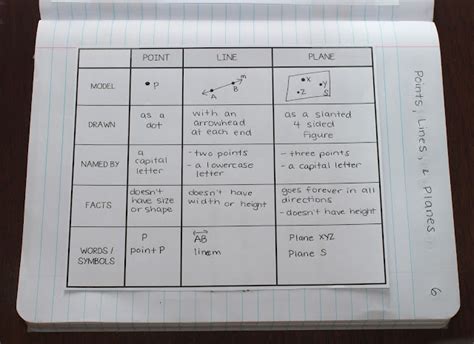 POINT LINE PLANE
MODEL
P
A B m
X Y Z S
DRAWN
as a
dot
with an
arrowhead
at each end
as a slanted
4 sided
figure
NAMED BY
a
capital
letter
- two points
- a lowercase
letter
- three points
- a capital letter
FACTS
doesn't
have size
or shape
doesn't have
width or height
goes forever in all
directions
- doesn't have height
WORDS /
SYMBOLS
P
point P
AB
line m
Plane XYZ
Plane S
Points, Lines, & Planes
6